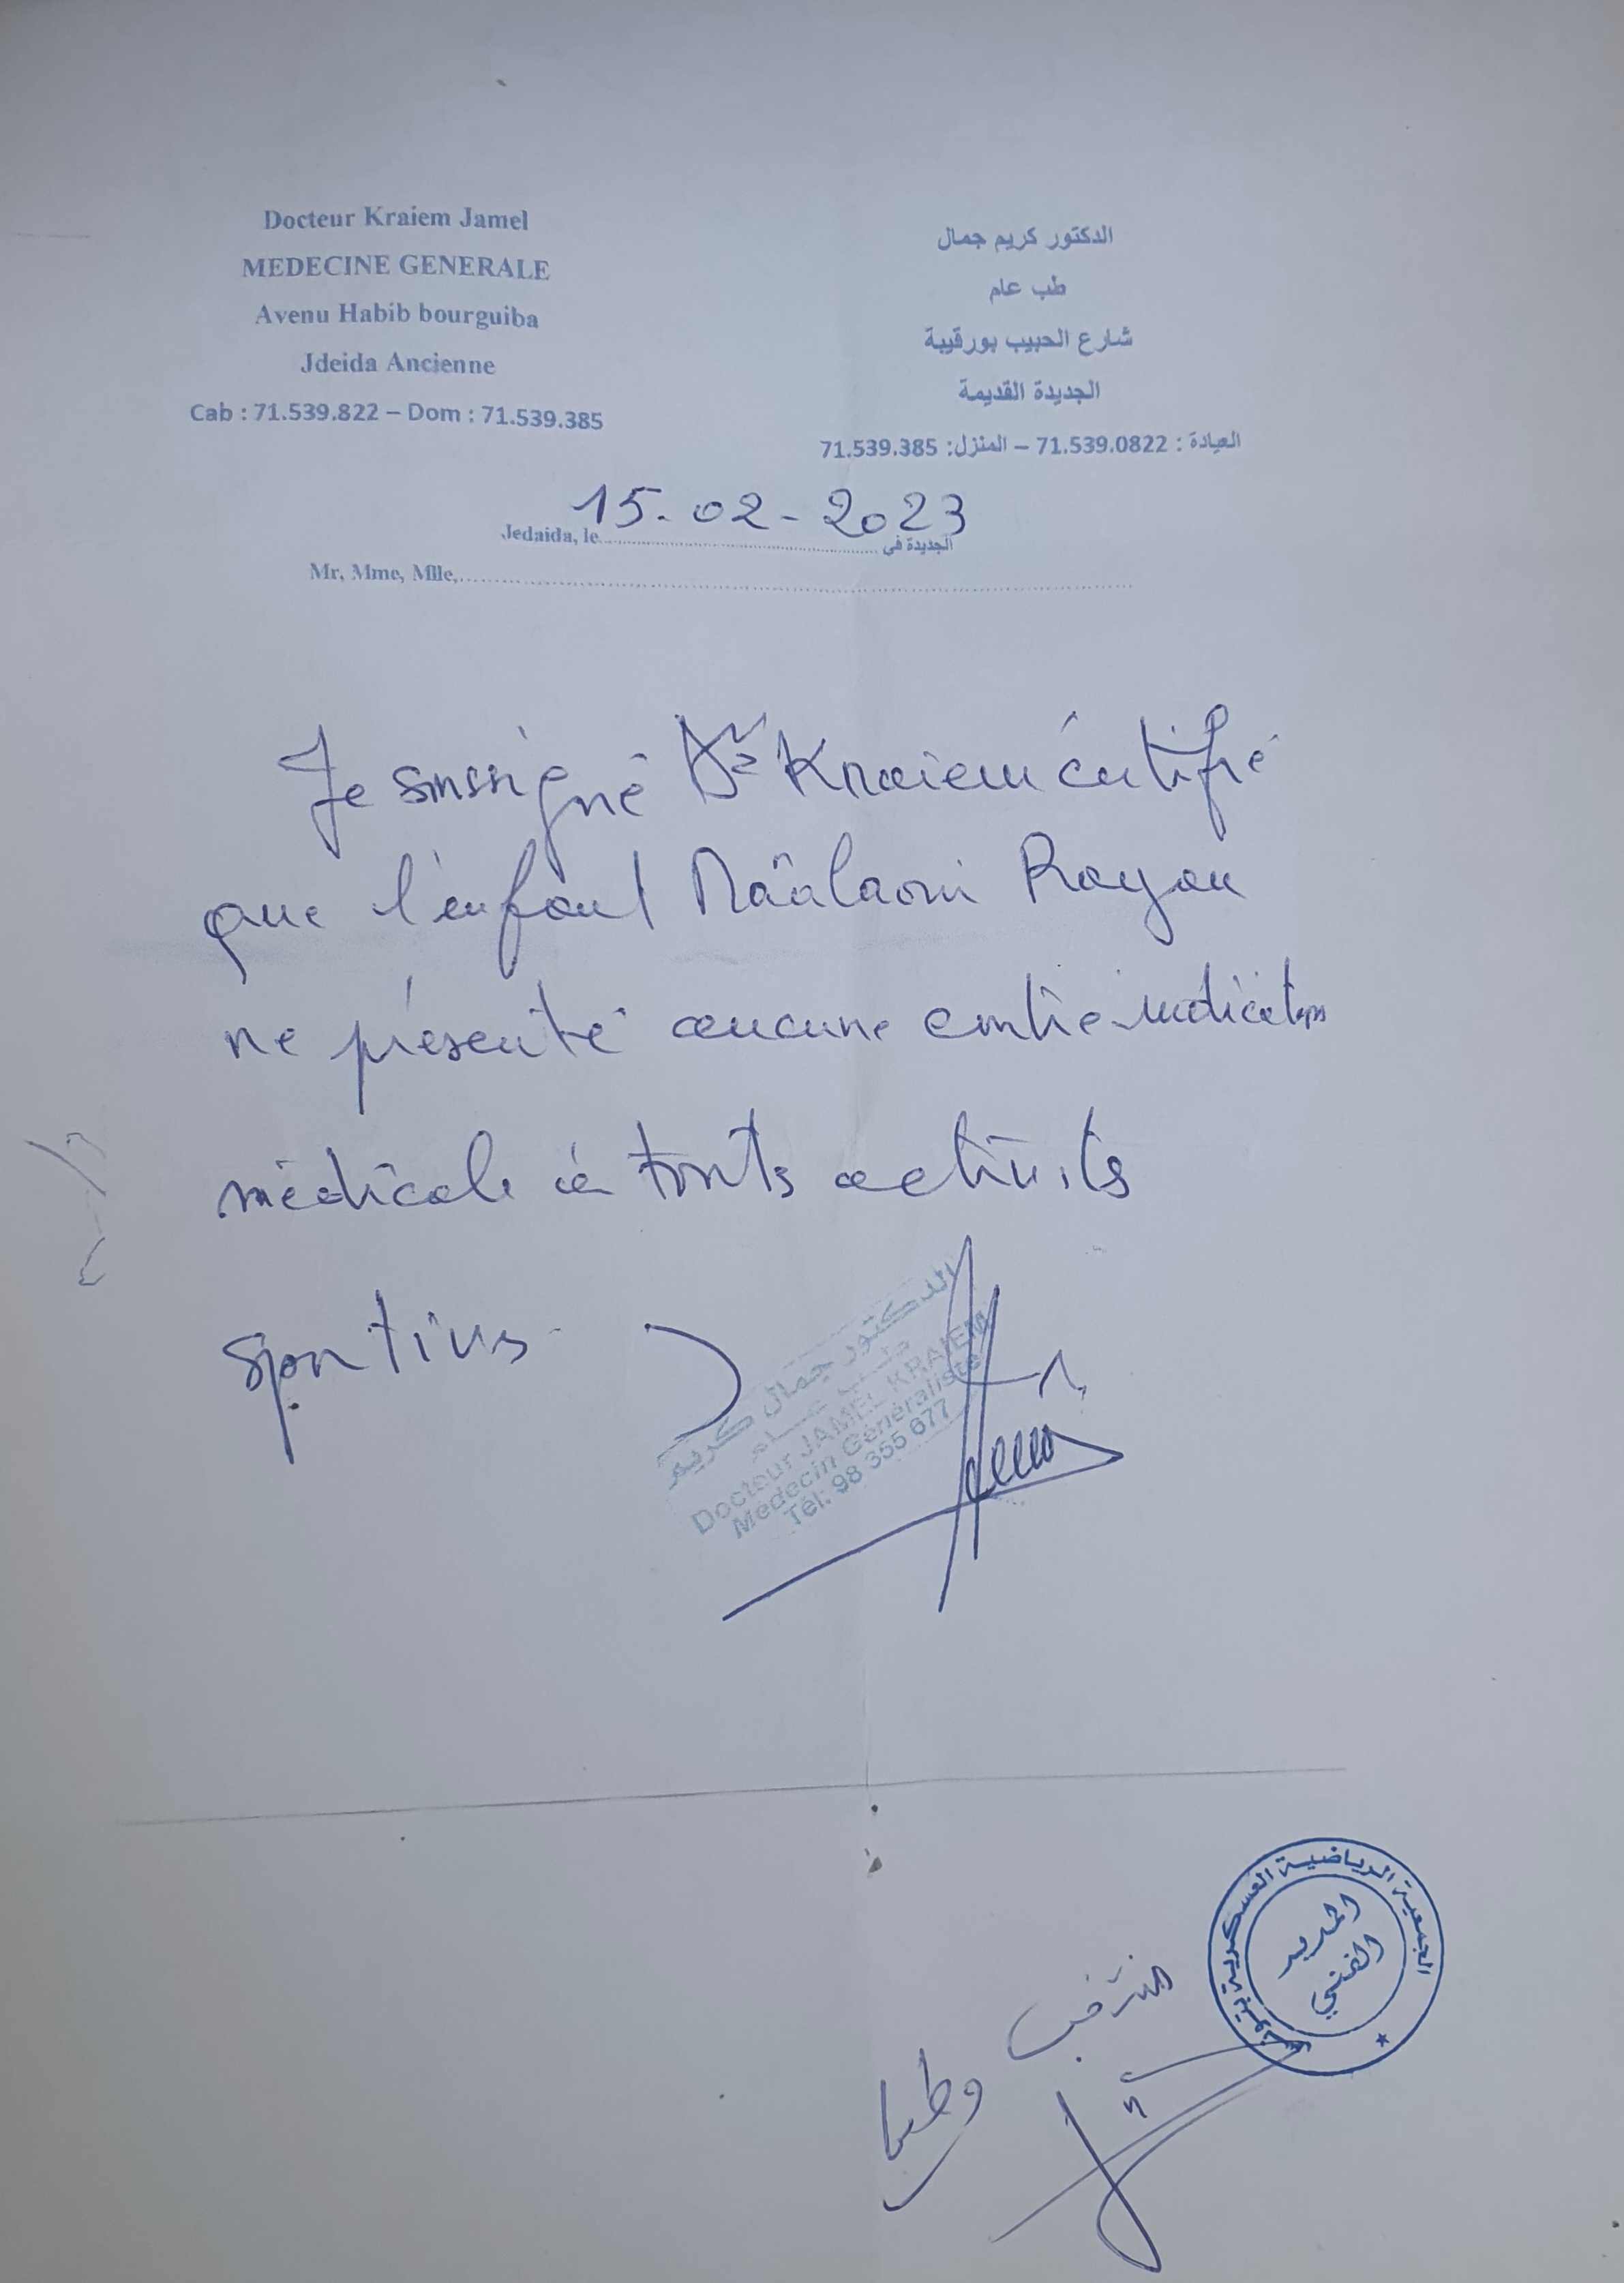 Docteur Kraiem Jamel
MEDECINE GENERALE
Avenu Habib bourguiba
Jdeida Ancienne
Cab : 71.539.822 – Dom : 71.539.385
الدكتور كريم جمال
طب عام
شارع الحبيب بورقيبة
الجديدة القديمة
العيادة : 71.539.0822 – المنزل: 71.539.385
15-02-2023
Jedaida, le الجديدة في
Mr, Mme, Mlle,
Je soussigné Dr Kraiem certifie
que l'enfant Maâlaoui Rayan
ne présente aucune contre-indication
médicale à touts activités
sportives
الدكتور جمال كريم
طب عام
Docteur JAMEL KRAIEM
Médecin Généraliste
Tél: 98 355 677
الجمعية الرياضية العسكرية بتونس
المدير
الفني